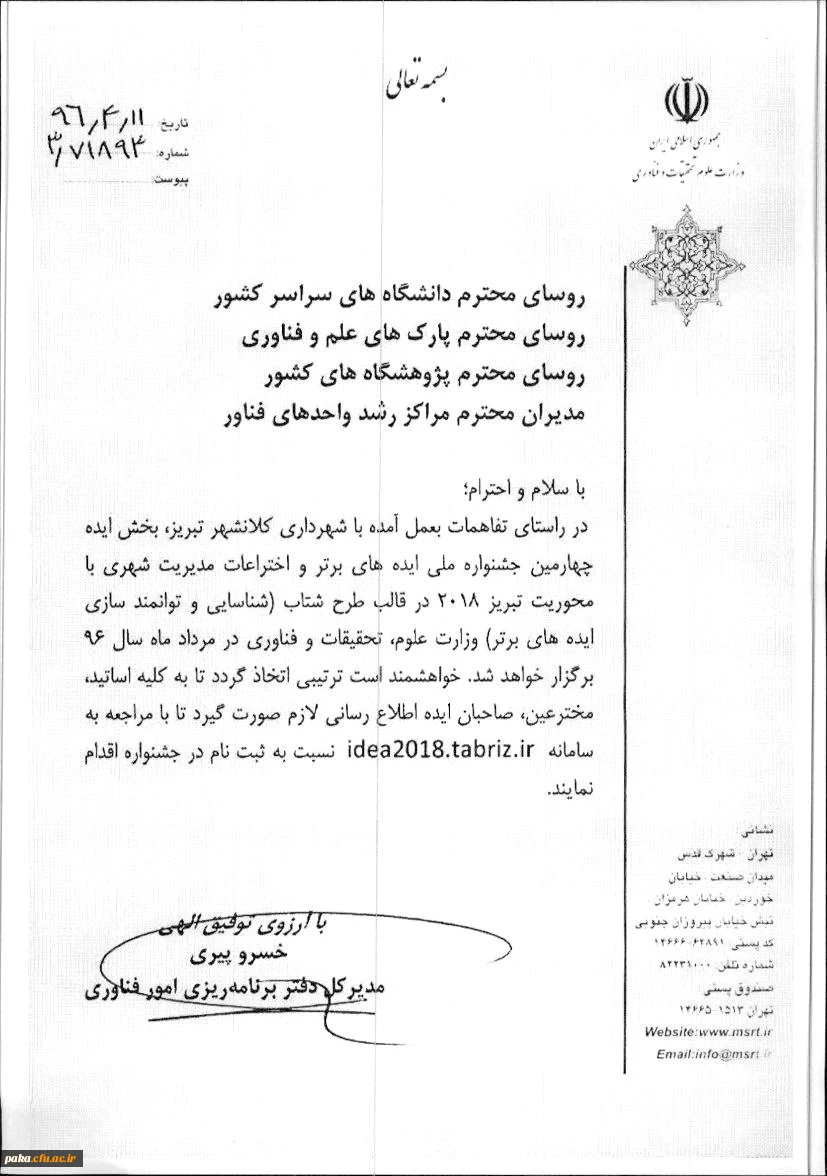 بسمه تعالی
جمهوری اسلامی ایران
وزارت علوم تحقیقات و فناوری
تاریخ: ۹۶٫۴٫۱۱
شماره: ۳٫۷۱۸۹۴
پیوست:
روسای محترم دانشگاه های سراسر کشور
روسای محترم پارک های علم و فناوری
روسای محترم پژوهشگاه های کشور
مدیران محترم مراکز رشد واحدهای فناور
با سلام و احترام؛
در راستای تفاهمات بعمل آمده با شهرداری کلانشهر تبریز، بخش ایده
چهارمین جشنواره ملی ایده های برتر و اختراعات مدیریت شهری با
محوریت تبریز ۲۰۱۸ در قالب طرح شتاب (شناسایی و توانمند سازی
ایده های برتر) وزارت علوم، تحقیقات و فناوری در مرداد ماه سال ۹۶
برگزار خواهد شد. خواهشمند است ترتیبی اتخاذ گردد تا به کلیه اساتید،
مخترعین، صاحبان ایده اطلاع رسانی لازم صورت گیرد تا با مراجعه به
سامانه idea2018.tabriz.ir نسبت به ثبت نام در جشنواره اقدام
نمایند.
با آرزوی توفیق الهی
خسرو پیری
مدیر کل دفتر برنامه‌ریزی امور فناوری
نشانی:
تهران - شهرک قدس
میدان صنعت - خیابان
خوردین - خیابان هرمزان -
نبش خیابان پیروزان جنوبی
کد پستی: ۶۴۸۹۱-۱۴۶۶۶
شماره تلفن: ۸۲۲۳۱۰۰۰
صندوق پستی:
تهران ۱۵۱۳-۱۴۶۶۵
Website:www.msrt.ir
Email:info@msrt.ir
paka.cfu.ac.ir